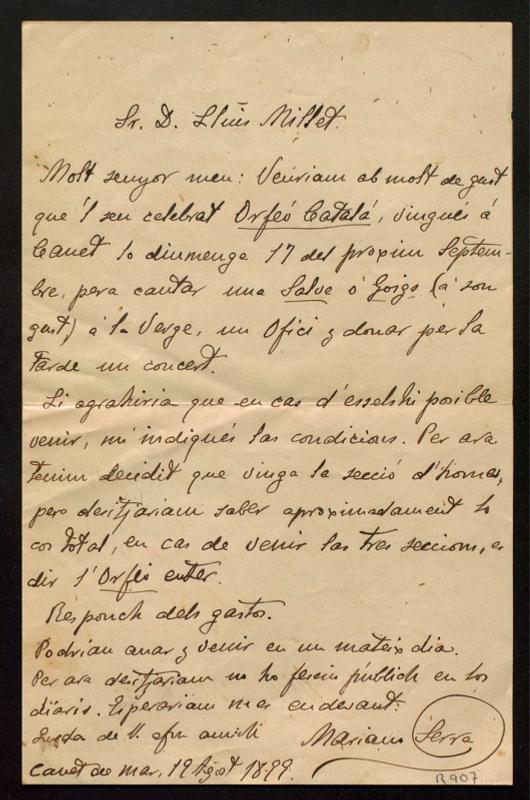 Sr. D. Lluis Millet.
Molt senyor meu: Veuriam ab molt de gust
que 'l seu celebrat Orfeó Catalá, vingués á
Canet lo diumenge 17 del proxim Septem-
bre, pera cantar una Salve ó Goigs (á son
gust) á la Verge, un Ofici y donar per la
Tarde un concert.
Li agrahiria que en cas d'esselshi posible
venir, m'indiqués las condicions. Per ara
tenim decidit que vinga la secció d'homes,
pero desitjariam saber aproximadament lo
cos total, en cas de venir las tres seccions, es
dir l'Orfeó enter.
Résponch dels gastos.
Podrian anar y venir en un mateix dia.
Per ara desitjariam no ho fessin públich en los
diaris. Esperariam mes endevant.
Queda de V. afm amich
Mariano Serra
Canet de mar, 19 Agost 1899.
R 907